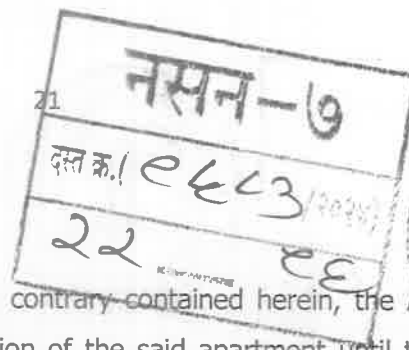 21
नसन-७
दस्त क्र.( ९६८३/
२२ ९६
contrary contained herein, the
ion of the said apartment until